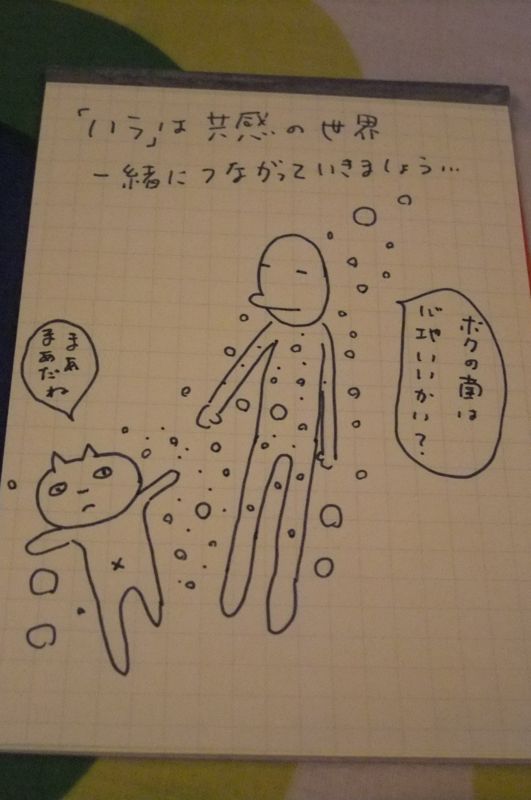 「いう」は 共感の世界
一緒につながっていきましょう…
ボクの菌は
心地いいかい？
まぁ
まぁだね